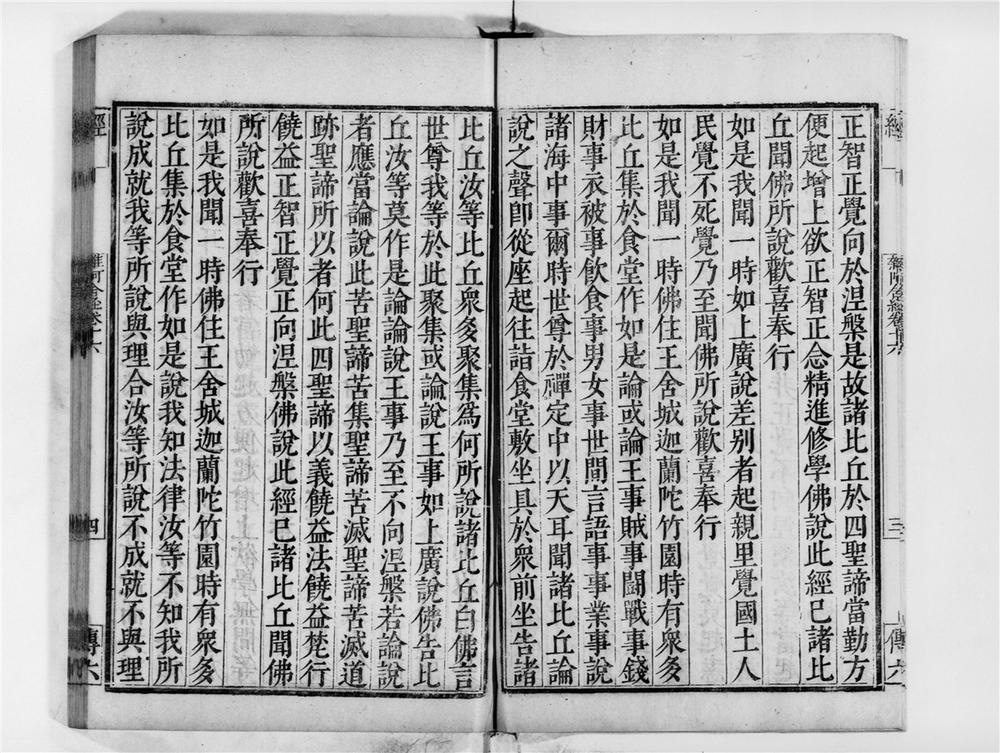 正智正覺向於涅槃是故諸比丘於四聖諦當勤方
便起增上欲正智正念精進修學佛說此經已諸比
丘聞佛所說歡喜奉行
如是我聞一時如上廣說差别者起親里覺國土人
民覺不死覺乃至聞佛所說歡喜奉行
如是我聞一時佛住王舍城迦蘭陀竹園時有衆多
比丘集於食堂作如是論或論王事賊事鬪戰事錢
財事衣被事飲食事男女事世間言語事事業事說
諸海中事爾時世尊於禪定中以天耳聞諸比丘論
說之聲卽從座起往詣食堂敷坐具於衆前坐告諸
經
雜阿含經卷十六
三
傳六
比丘汝等比丘衆多聚集爲何所說諸比丘白佛言
世尊我等於此聚集或論說王事如上廣說佛告比
丘汝等莫作是論論說王事乃至不向涅槃若論說
者應當論說此苦聖諦苦集聖諦苦滅聖諦苦滅道
跡聖諦所以者何此四聖諦以義饒益法饒益梵行
饒益正智正覺正向涅槃佛說此經已諸比丘聞佛
所說歡喜奉行
如是我聞一時佛住王舍城迦蘭陀竹園時有衆多
比丘集於食堂作如是說我知法律汝等不知我所
說成就我等所說與理合汝等所說不成就不與理
經
雜阿含經卷十六
四
傳六